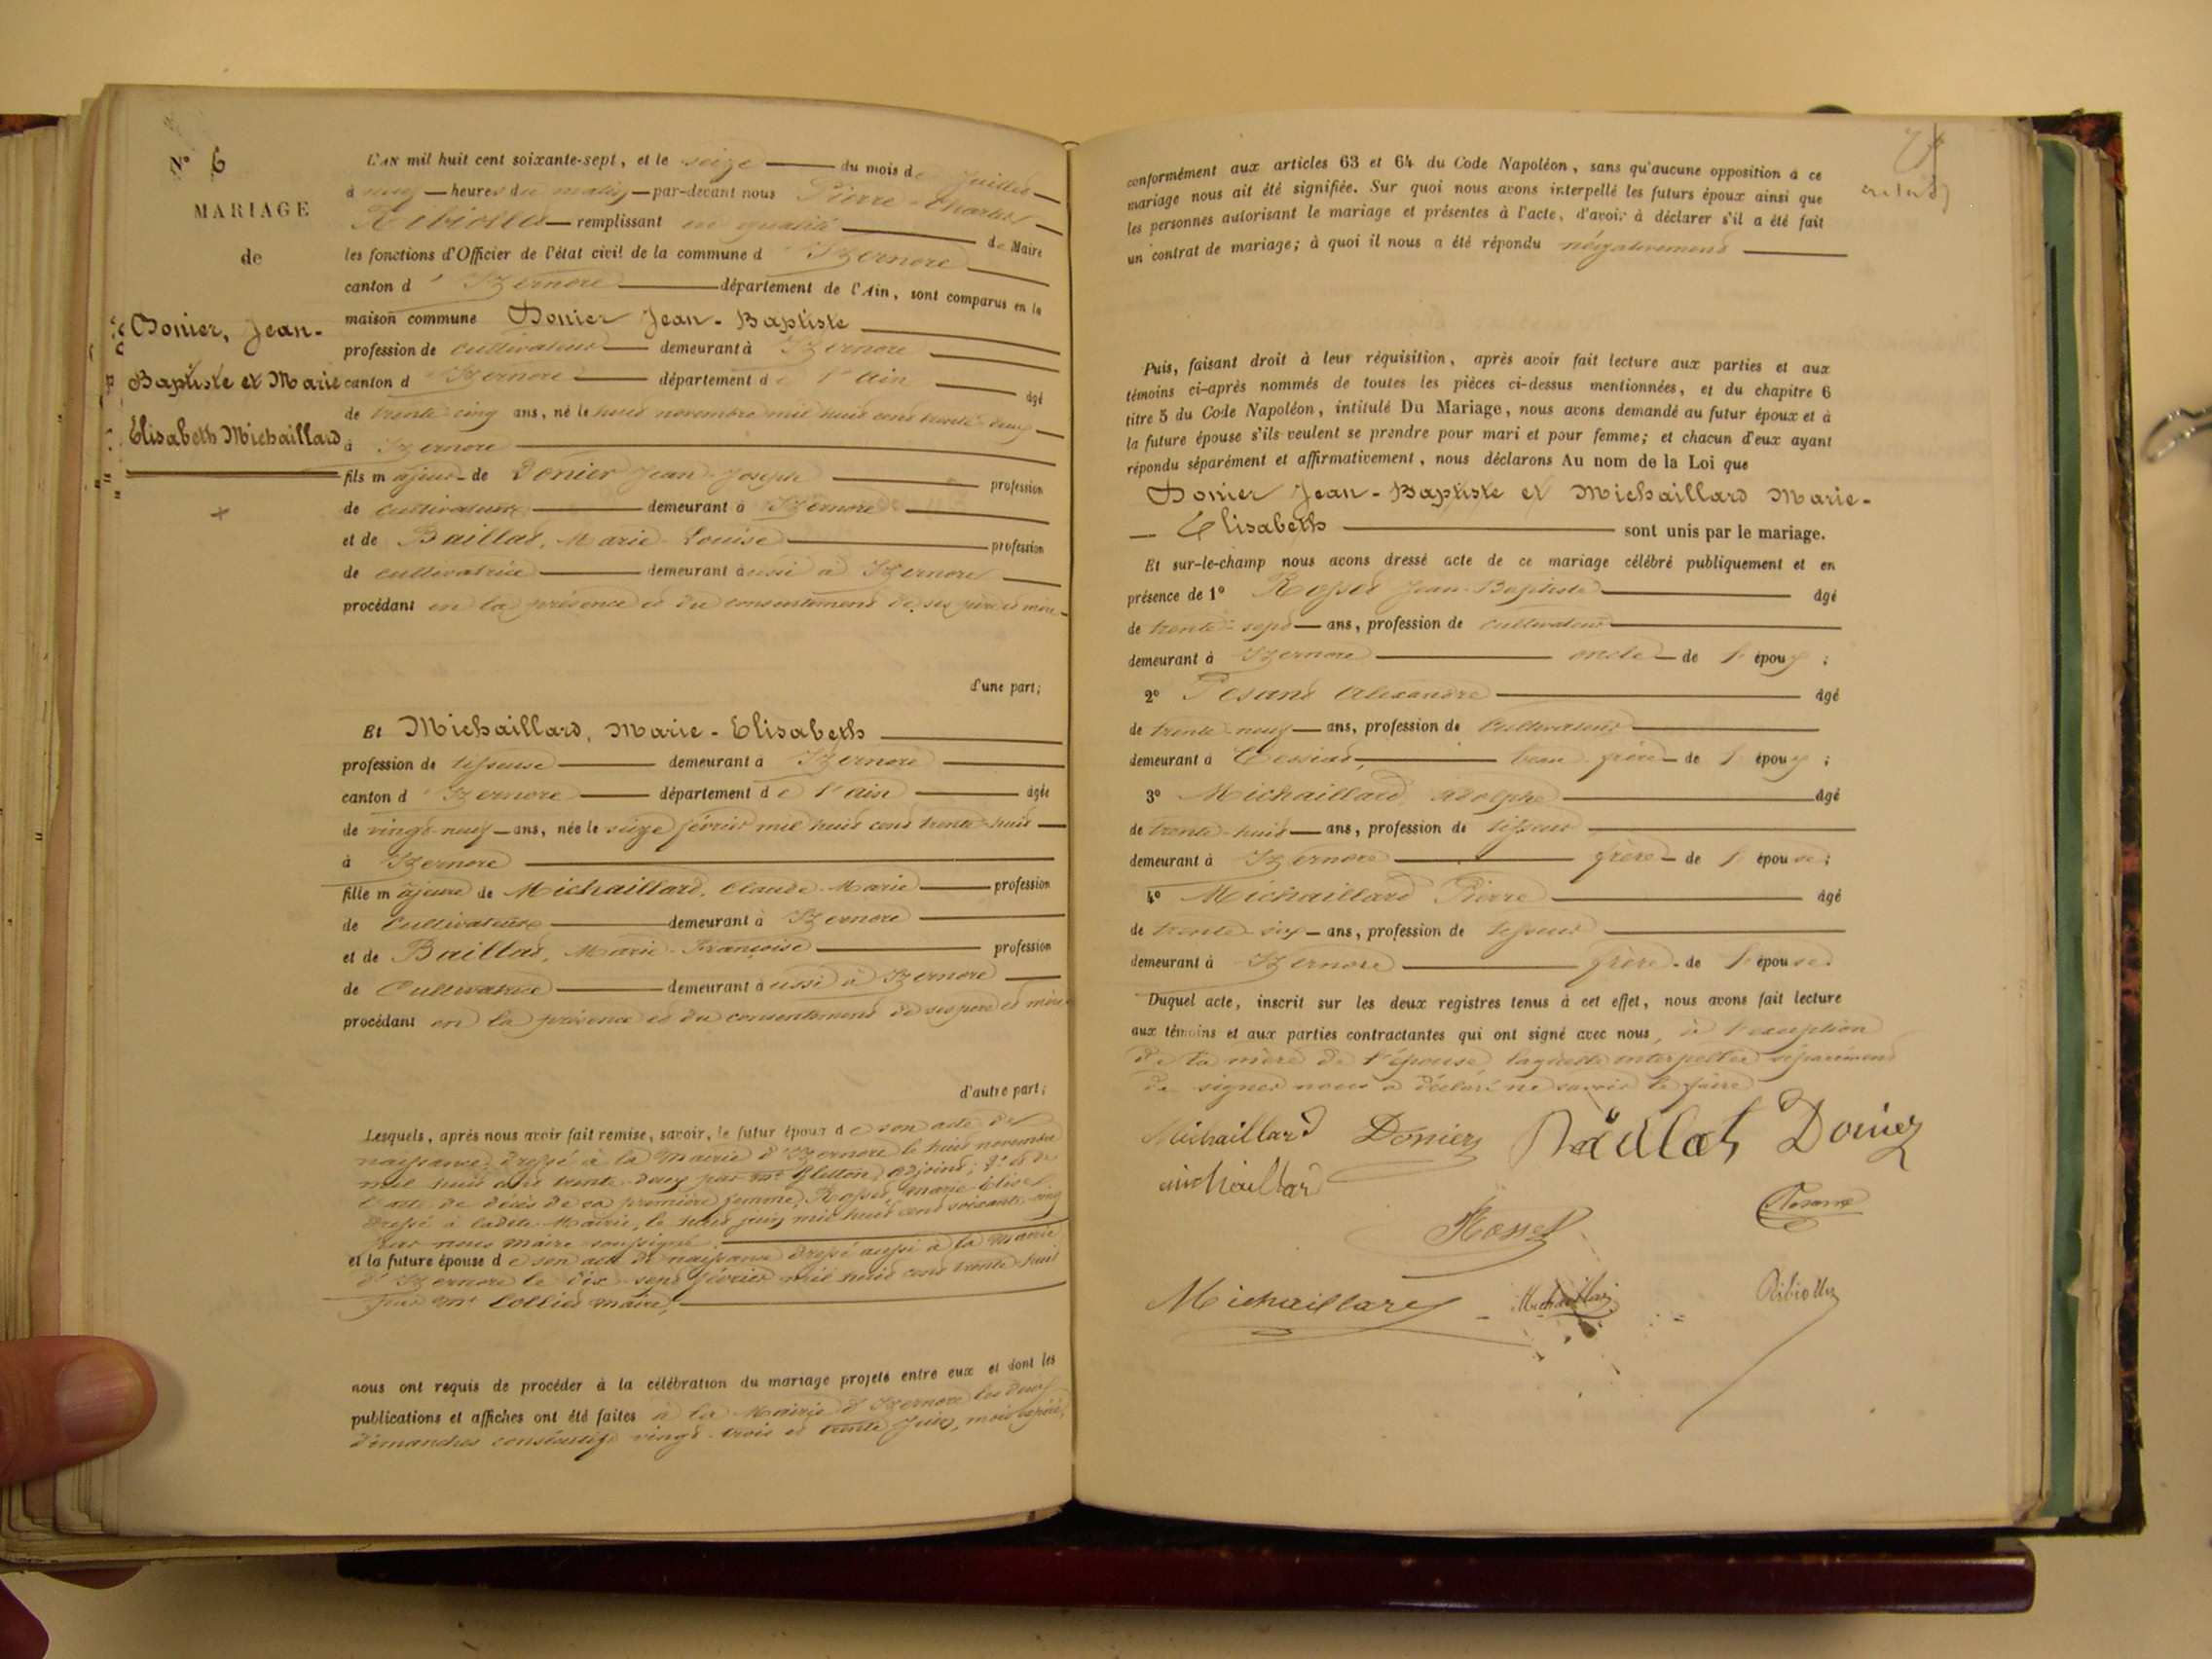 N° 6
MARIAGE
de
Donier, Jean-
Baptiste et Marie
Elisabeth Michaillard
L'AN mil huit cent soixante-sept, et le seize du mois de Juillet
à neuf heures du matin par-devant nous Pierre-Charles
remplissant en qualité de Maire
les fonctions d'Officier de l'état civil de la commune d'Izernore
canton d'Izernore département de l'Ain, sont comparus en la
maison commune Donier Jean-Baptiste
profession de cultivateur demeurant à Izernore
canton d'Izernore département de l'Ain âgé
de trente cinq ans, né le huit novembre mil huit cent trente-deux
à Izernore
fils majeur de Donier Jean-Joseph profession
de cultivateur demeurant à Izernore
et de Baillat, Marie-Louise profession
de cultivatrice demeurant aussi à Izernore
procédant en la présence et du consentement de ses père et mère
d'une part;
Et Michaillard, Marie-Elisabeth
profession de tisseuse demeurant à Izernore
canton d'Izernore département de l'Ain âgée
de vingt-neuf ans, née le seize février mil huit cent trente-huit
à Izernore
fille majeure de Michaillard, Claude-Marie profession
de Cultivateur demeurant à Izernore
et de Baillat, Marie-Françoise profession
de Cultivatrice demeurant aussi à Izernore
procédant en la présence et du consentement de ses père et mère
d'autre part;
Lesquels, après nous avoir fait remise, savoir, le futur époux de son acte de
naissance, dressé à la Mairie d'Izernore le huit novembre
mil huit cent trente-deux par Mr adjoint; 2° de
l'acte de décès de sa première femme, Rosset, Marie-Elise
dressé à ladite Mairie, le huit juin mil huit cent soixante-cinq
par nous maire soussigné.
et la future épouse de son acte de naissance dressé aussi à la Mairie
d'Izernore le dix-sept février mil huit cent trente-huit
par Mr Collier maire;
nous ont requis de procéder à la célébration du mariage projeté entre eux et dont les
publications et affiches ont été faites à la Mairie d'Izernore les deux
dimanches consécutifs vingt-trois et trente Juin, mois expiré,
conformément aux articles 63 et 64 du Code Napoléon, sans qu'aucune opposition à ce
mariage nous ait été signifiée. Sur quoi nous avons interpellé les futurs époux ainsi que
les personnes autorisant le mariage et présentes à l'acte, d'avoir à déclarer s'il a été fait
un contrat de mariage; à quoi il nous a été répondu négativement
Puis, faisant droit à leur réquisition, après avoir fait lecture aux parties et aux
témoins ci-après nommés de toutes les pièces ci-dessus mentionnées, et du chapitre 6
titre 5 du Code Napoléon, intitulé Du Mariage, nous avons demandé au futur époux et à
la future épouse s'ils veulent se prendre pour mari et pour femme; et chacun d'eux ayant
répondu séparément et affirmativement, nous déclarons Au nom de la Loi que
Donier Jean-Baptiste et Michaillard Marie-
Elisabeth sont unis par le mariage.
Et sur-le-champ nous avons dressé acte de ce mariage célébré publiquement et en
présence de 1° Rosset Jean-Baptiste âgé
de trente-sept ans, profession de cultivateur
demeurant à Izernore oncle de l'époux;
2° Pesant Alexandre âgé
de trente-neuf ans, profession de Cultivateur
demeurant à Cessiat, beau-frère de l'époux;
3° Michaillard Adolphe âgé
de trente-huit ans, profession de tisseur
demeurant à Izernore frère de l'épouse;
4° Michaillard Pierre âgé
de trente-six ans, profession de tisseur
demeurant à Izernore frère de l'épouse.
Duquel acte, inscrit sur les deux registres tenus à cet effet, nous avons fait lecture
aux témoins et aux parties contractantes qui ont signé avec nous, à l'exception
de la mère de l'épouse, laquelle interpellée séparément
de signer nous a déclaré ne savoir le faire
Michaillard Donier Baillat Donier
michaillard
Rosset Pesant
Michaillard Michaillard Ribiollet